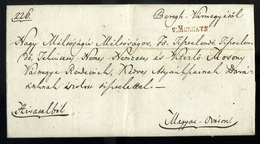 226.
Beregh Vármegyétől
v. MUNKATS
Nagy Méltóságú Méltóságos, Fő Tisztelendő, Tisztelen-
dő, Tekintetes, Nemes, Nemzetes és Vitézlő Mosony
Vármegye Rendeinek, Kedves Atyánkfiainak Bará-
tainknak
Hivatalból
Magyar-Óvárra